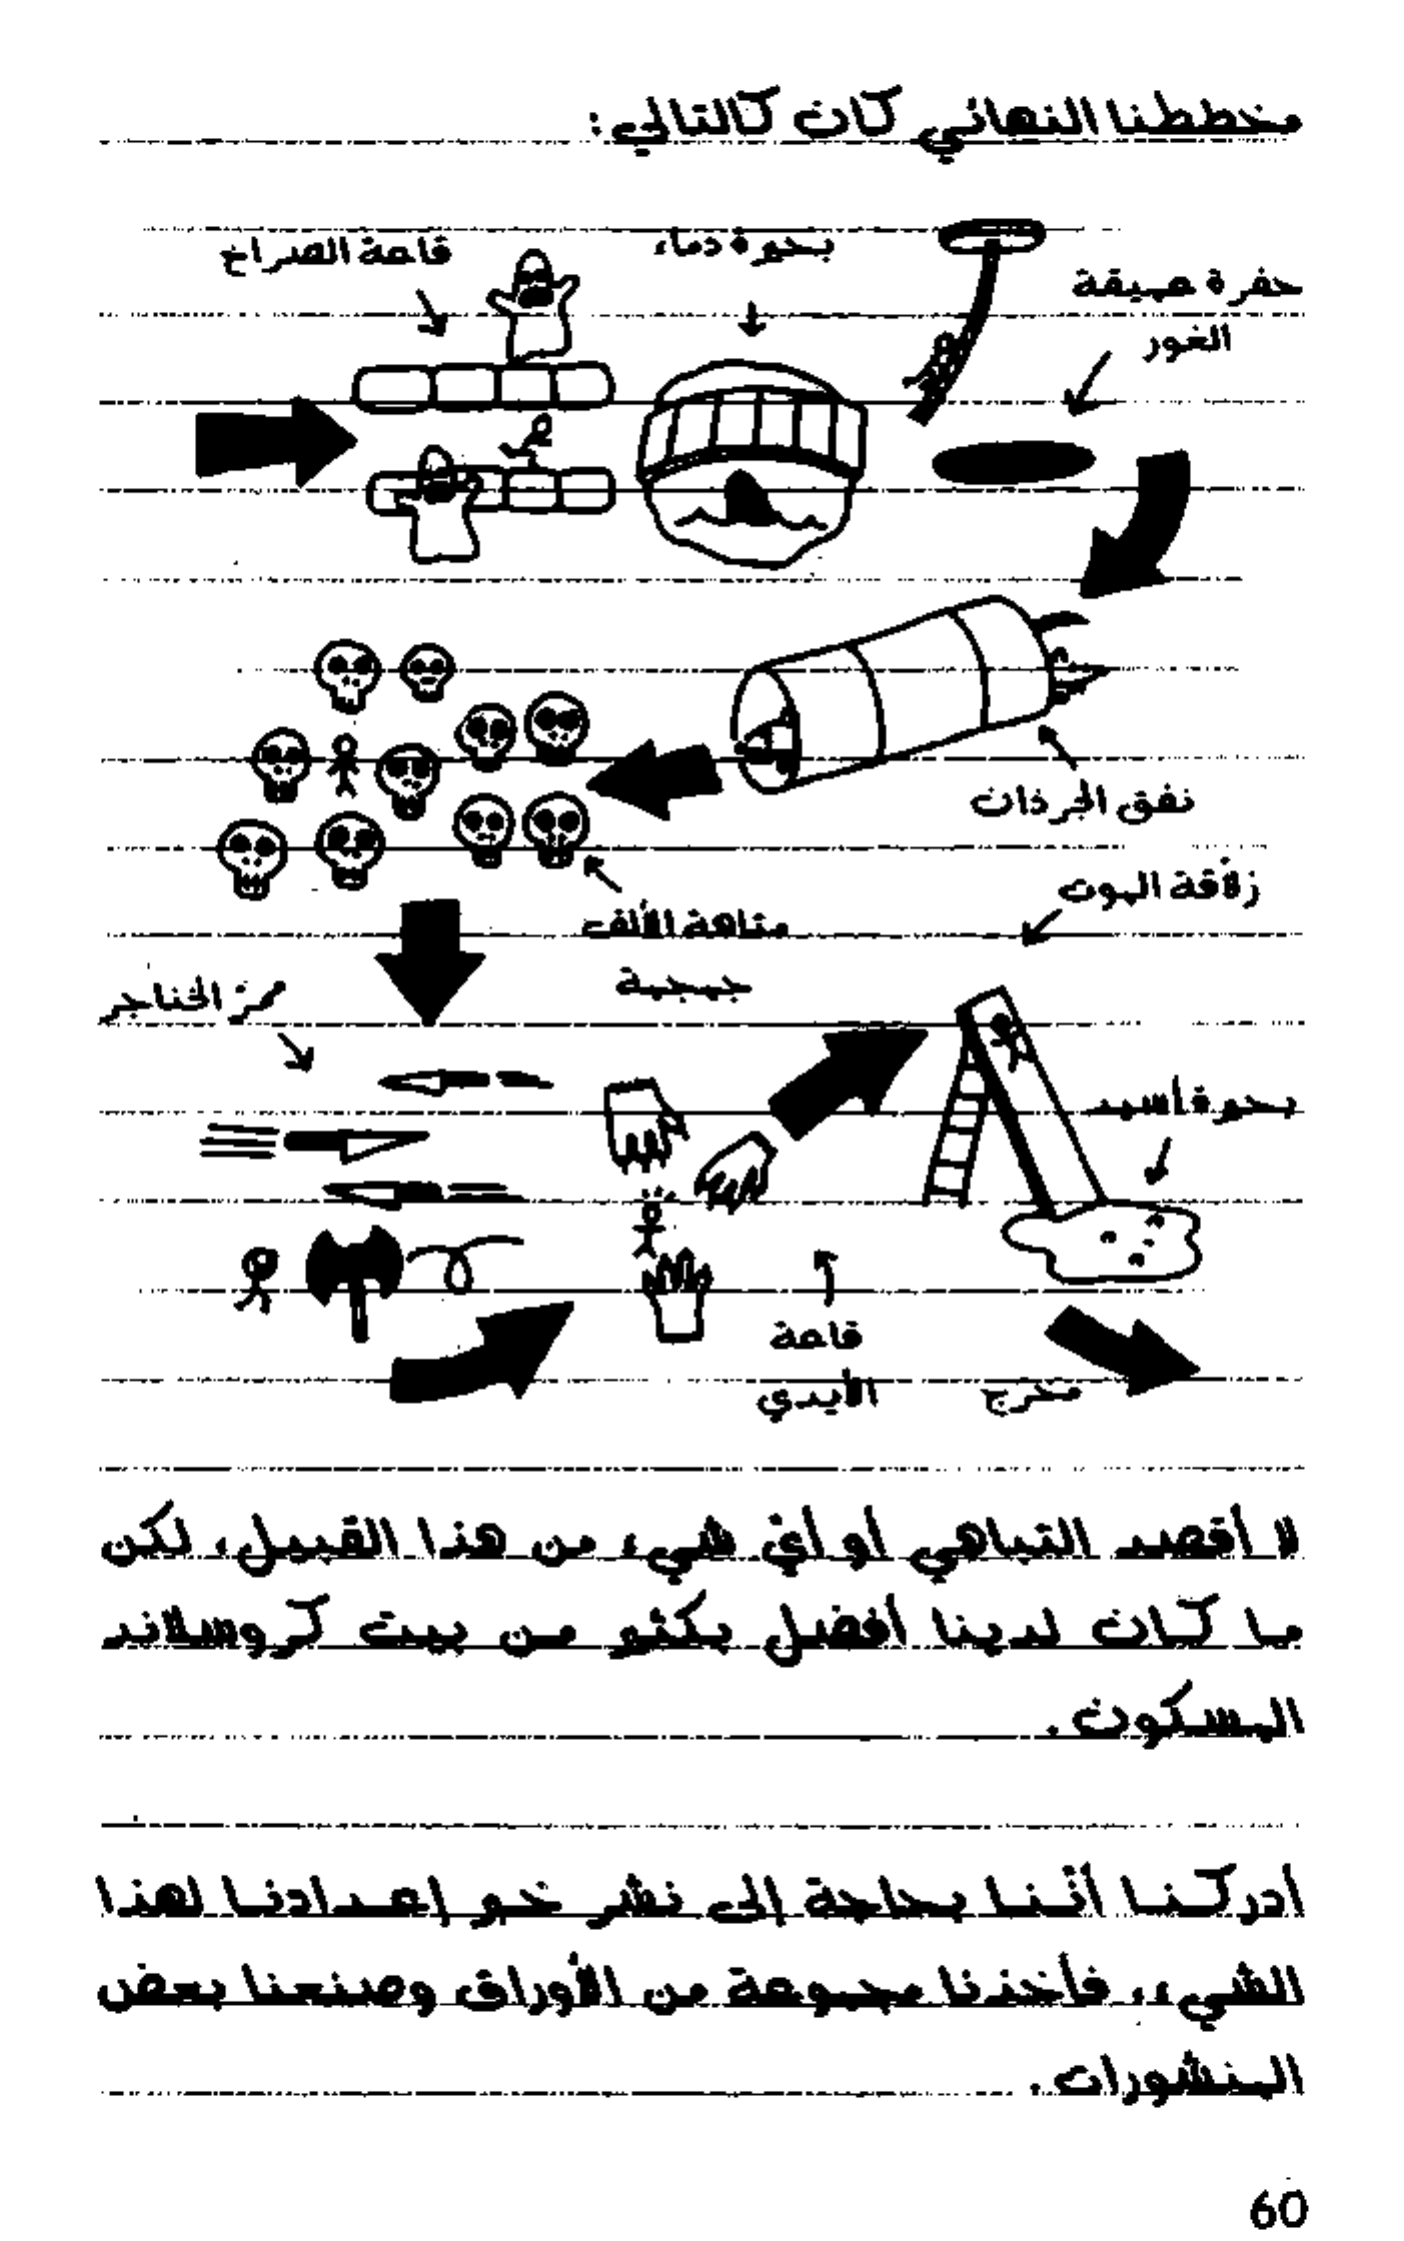 مخططنا النهائي كان كالتالي:
قاعة الصراخ
بحيرة دماء
حفرة عميقة
الغور
نفق الجرذان
متاهة الألف
جمجمة
زلاّقة الموت
ممرّ الخناجر
بحيرة أسيد
قاعة
الأيدي
مخرج
لا أقصد التباهي أو أيّ شيء من هذا القبيل، لكن
ما كان لدينا أفضل بكثير من بيت كروسلاند
المسكون.
أدركنا أنّنا بحاجة إلى نشر خبر إعدادنا لهذا
الشيء، فأخذنا مجموعة من الأوراق وصنعنا بعض
المنشورات.
60